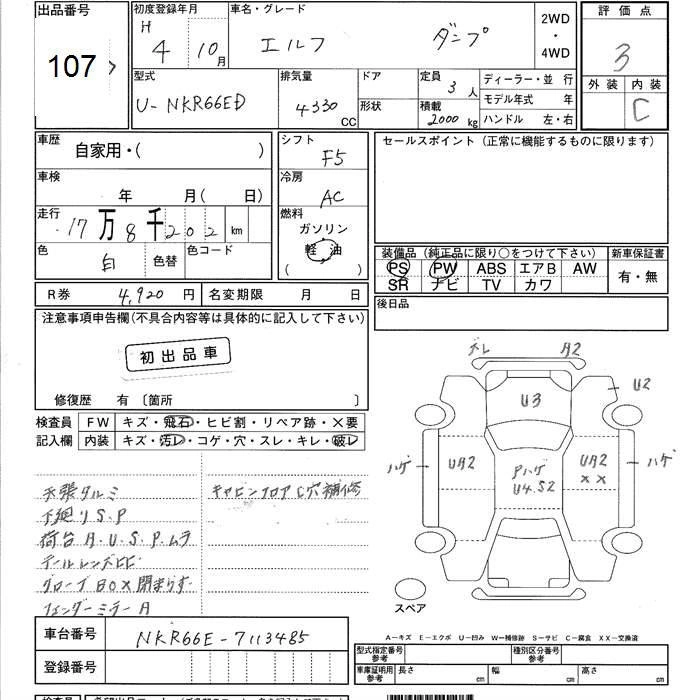 出品番号 初度登録年月 車名・グレード 2WD・4WD 評価点
107 H 4 10月 エルフ ダンプ 3
型式 排気量 ドア 定員 3人 ディーラー・並 行 外装 内装
U-NKR66ED 4330 CC 形状 積載 2000kg モデル年式 年 C
ハンドル 左・右
車歴 自家用・( ) シフト F5 セールスポイント (正常に機能するものに限ります)
車検 年 月( 日) 冷房 AC
走行 17万8千202km 燃料 ガソリン
色 白 色替 色コード 軽油 ( )
装備品 (純正品に限り○をつけて下さい) 新車保証書
PS PW ABS エアB AW 有・無
SR ナビ TV カワ
R券 4,920円 名変期限 月 日 後日品
注意事項申告欄(不具合内容等は具体的に記入して下さい)
初出品車
修復歴 有 〔箇所 〕
検査員 FW キズ・飛石・ヒビ割・リペア跡・×要
記入欄 内装 キズ・汚レ・コゲ・穴・スレ・キレ・破レ
天張タルミ キャビンフロアC穴補修
下廻りS.P
荷台A.U.S.P.ムラ
テールレンズヒビ
グローブBOX閉まりず
フェンダーミラーA
ズレ A2
U3 U2
ハゲ UA2 Pハゲ UA2 ハゲ
U4.S2 ××
スペア
A-キズ E-エクボ U-凹み W-補修跡 S-サビ C-腐食 XX-交換済
車台番号 NKR66E-7113485
登録番号
型式指定番号 参考 種別区分番号 参考
車庫証明用 参考 長さ cm 幅 cm 高さ cm